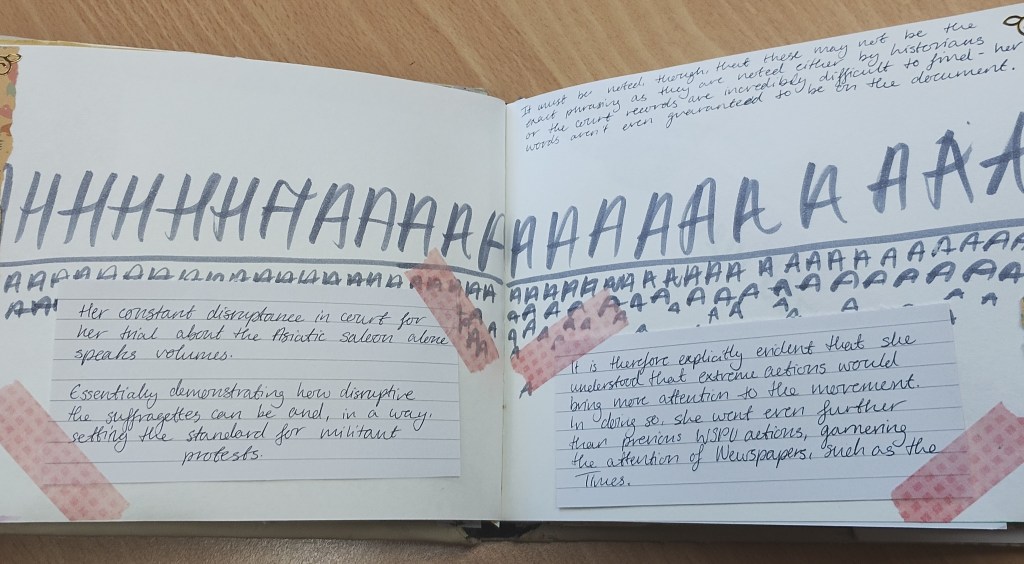 HHHHHAAAAAA
Her constant disruptance in court for
her trial about the Asiatic saloon alone
speaks volumes.
Essentially demonstrating how disruptive
the suffragettes can be and, in a way,
setting the standard for militant
protests.
It must be noted, though, that these may not be the
exact phrasing as they are noted either by historians
or the court records are incredibly difficult to find - her
words aren't even guaranteed to be on the document.
AAAAAAAAAA
It is therefore explicitly evident that she
understood that extreme actions would
bring more attention to the movement.
In doing so, she went even further
than previous WSPU actions, garnering
the attention of Newspapers, such as the
Times.